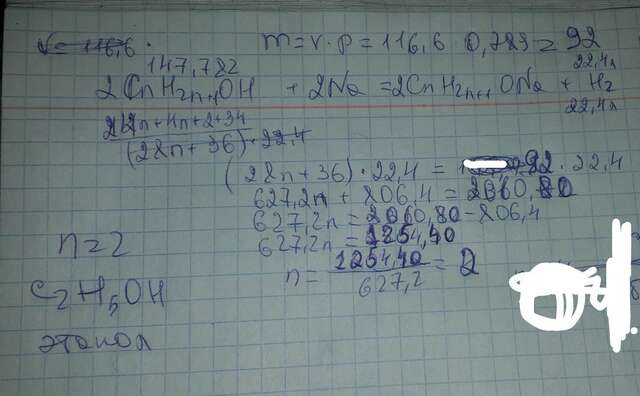 m = v · p = 116,6 · 0,789 = 92
147,782 22,4л
2CnH2n+1OH + 2Na = 2CnH2n+1ONa + H2
22,4л
(28n+36) · 22,4
(28n+36) · 22,4 = 92 · 22,4
627,2n + 806,4 = 2060,80
627,2n = 2060,80 - 806,4
627,2n = 1254,40
n = 1254,40 / 627,2 = 2
n=2
C2H5OH
этанол